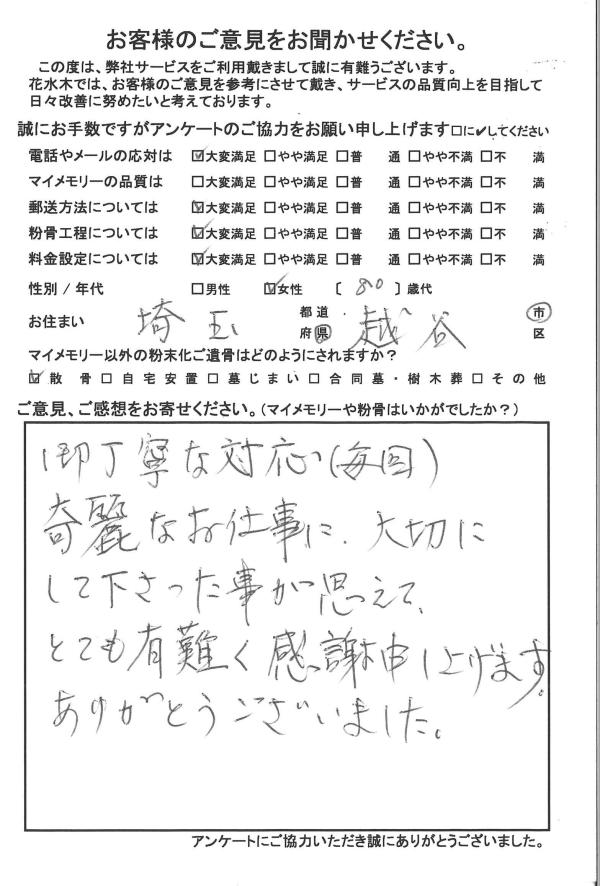 お客様のご意見をお聞かせください。
この度は、弊社サービスをご利用戴きまして誠に有難うございます。
花水木では、お客様のご意見を参考にさせて戴き、サービスの品質向上を目指して
日々改善に努めたいと考えております。
誠にお手数ですがアンケートのご協力をお願い申し上げます□に✔してください
電話やメールの応対は ☑大変満足 □やや満足 □普 通 □やや不満 □不 満
マイメモリーの品質は □大変満足 □やや満足 □普 通 □やや不満 □不 満
郵送方法については ☑大変満足 □やや満足 □普 通 □やや不満 □不 満
粉骨工程については ☑大変満足 □やや満足 □普 通 □やや不満 □不 満
料金設定については ☑大変満足 □やや満足 □普 通 □やや不満 □不 満
性別 / 年代 □男性 ☑女性 〔 80 〕歳代
お住まい 埼玉 都道府県 越谷 市区
マイメモリー以外の粉末化ご遺骨はどのようにされますか?
☑散 骨 □自宅安置 □墓じまい □合同墓・樹木葬 □その他
ご意見、ご感想をお寄せください。(マイメモリーや粉骨はいかがでしたか?)
御丁寧な対応(毎回)
奇麗なお仕事に、大切に
して下さった事が思えて、
とても有難く感謝申し上げます。
ありがとうございました。
アンケートにご協力いただき誠にありがとうございました。